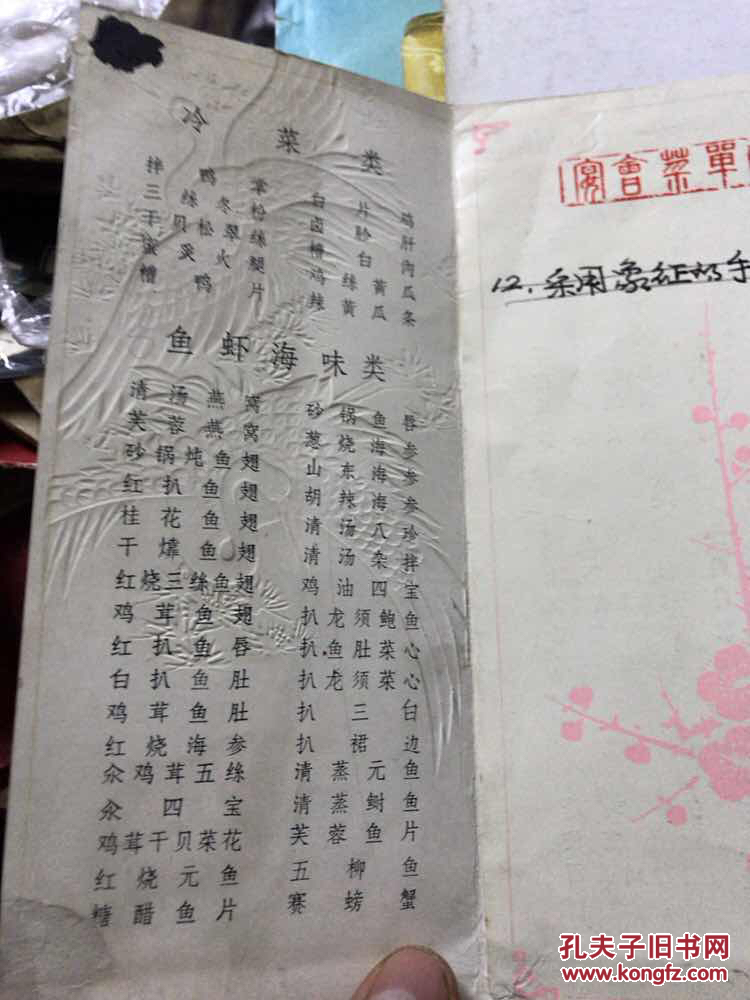 冷菜类
拌鸭掌
三丝冬粉
干贝松翠丝
火腿
糟鸭片
白片鸡
卤肫肝
糟白肉
鸡丝黄瓜
辣黄瓜条
鱼虾海味类
清汤燕窝
芙蓉燕窝
砂锅炖鱼翅
红扒鱼翅
桂花鱼翅
干㸆鱼翅
红烧三丝鱼翅
鸡茸鱼翅
红扒鱼唇
白扒鱼肚
鸡茸鱼肚
红烧海参
汆鸡茸五丝
汆四宝
鸡茸干贝菜花
红烧元鱼
糖醋鱼片
砂锅鱼唇
葱烧海参
山东海参
胡辣海参
清汤八珍
清汤杂拌
鸡油四宝
扒龙须鲍鱼
扒鱼肚菜心
扒龙须菜心
扒三白
扒裙边
清蒸元鱼
清蒸鲥鱼
芙蓉鱼片
五柳鱼
赛螃蟹
宴會菜單
12.采用象征的手
孔夫子旧书网
www.kongfz.com